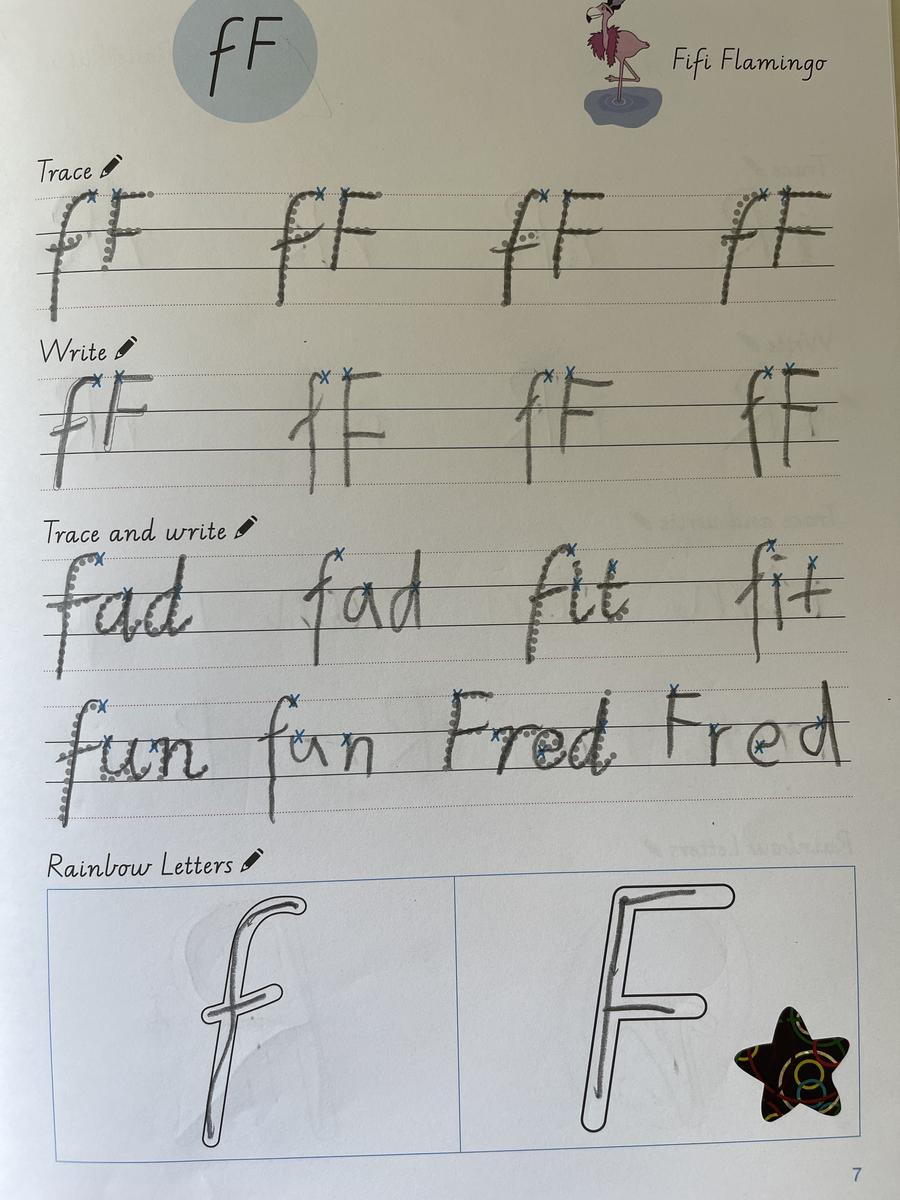 fF
Fifi Flamingo
Trace
fF fF fF fF
Write
fF fF fF fF
Trace and write
fad fad fit fit
fun fun Fred Fred
Rainbow Letters
f F
7